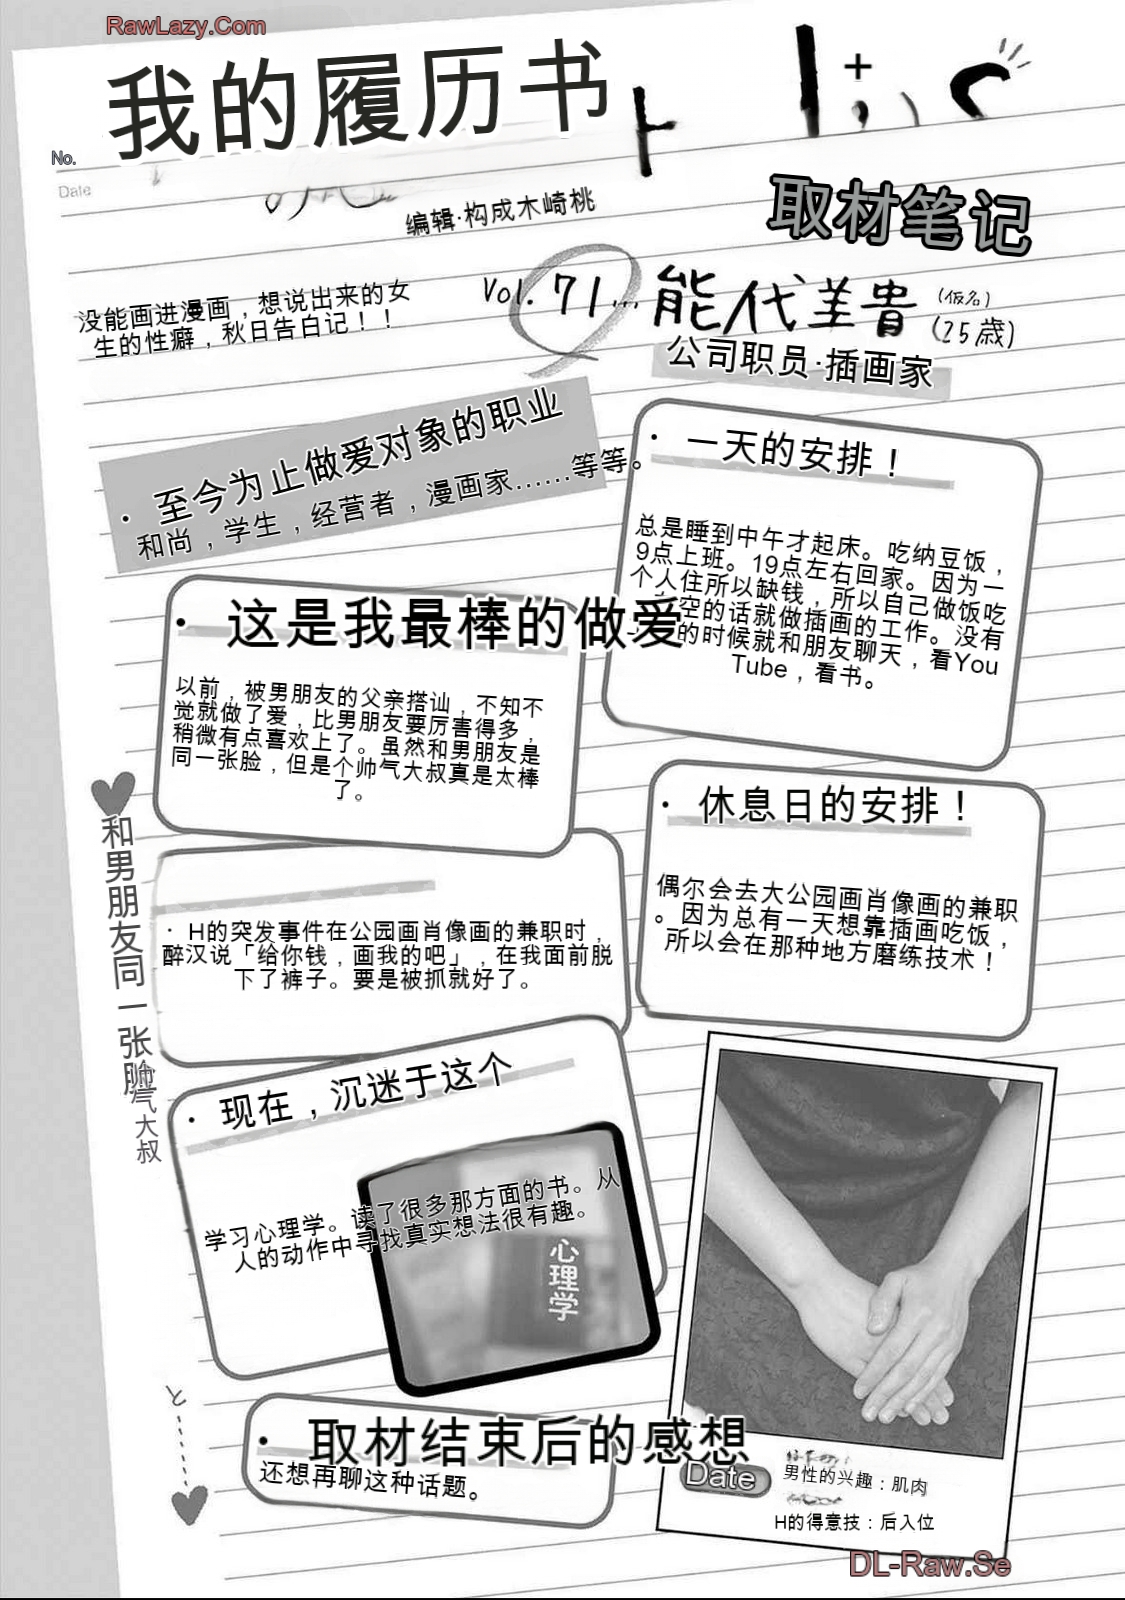 RawLazy.Com
我的履历书
No.
Date
编辑·构成木崎桃
取材笔记
没能画进漫画，想说出来的女
生的性癖，秋日告白记！！
Vol. 71...能代美貴(仮名)(25歳)
公司职员·插画家
· 至今为止做爱对象的职业
和尚，学生，经营者，漫画家......等等。
· 一天的安排！
总是睡到中午才起床。吃纳豆饭，
9点上班。19点左右回家。因为一
个人住所以缺钱，所以自己做饭吃
空的话就做插画的工作。没有
的时候就和朋友聊天，看You
Tube，看书。
· 这是我最棒的做爱
以前，被男朋友的父亲搭讪，不知不
觉就做了爱，比男朋友要厉害得多，
稍微有点喜欢上了。虽然和男朋友是
同一张脸，但是个帅气大叔真是太棒
了。
· 休息日的安排！
偶尔会去大公园画肖像画的兼职
。因为总有一天想靠插画吃饭，
所以会在那种地方磨练技术！
和男朋友同一张脸
气大叔
· H的突发事件在公园画肖像画的兼职时，
醉汉说「给你钱，画我的吧」，在我面前脱
下了裤子。要是被抓就好了。
· 现在，沉迷于这个
学习心理学。读了很多那方面的书。从
人的动作中寻找真实想法很有趣。
心理学
と
· 取材结束后的感想
还想再聊这种话题。
Date
男性的兴趣：肌肉
H的得意技：后入位
DL-Raw.Se